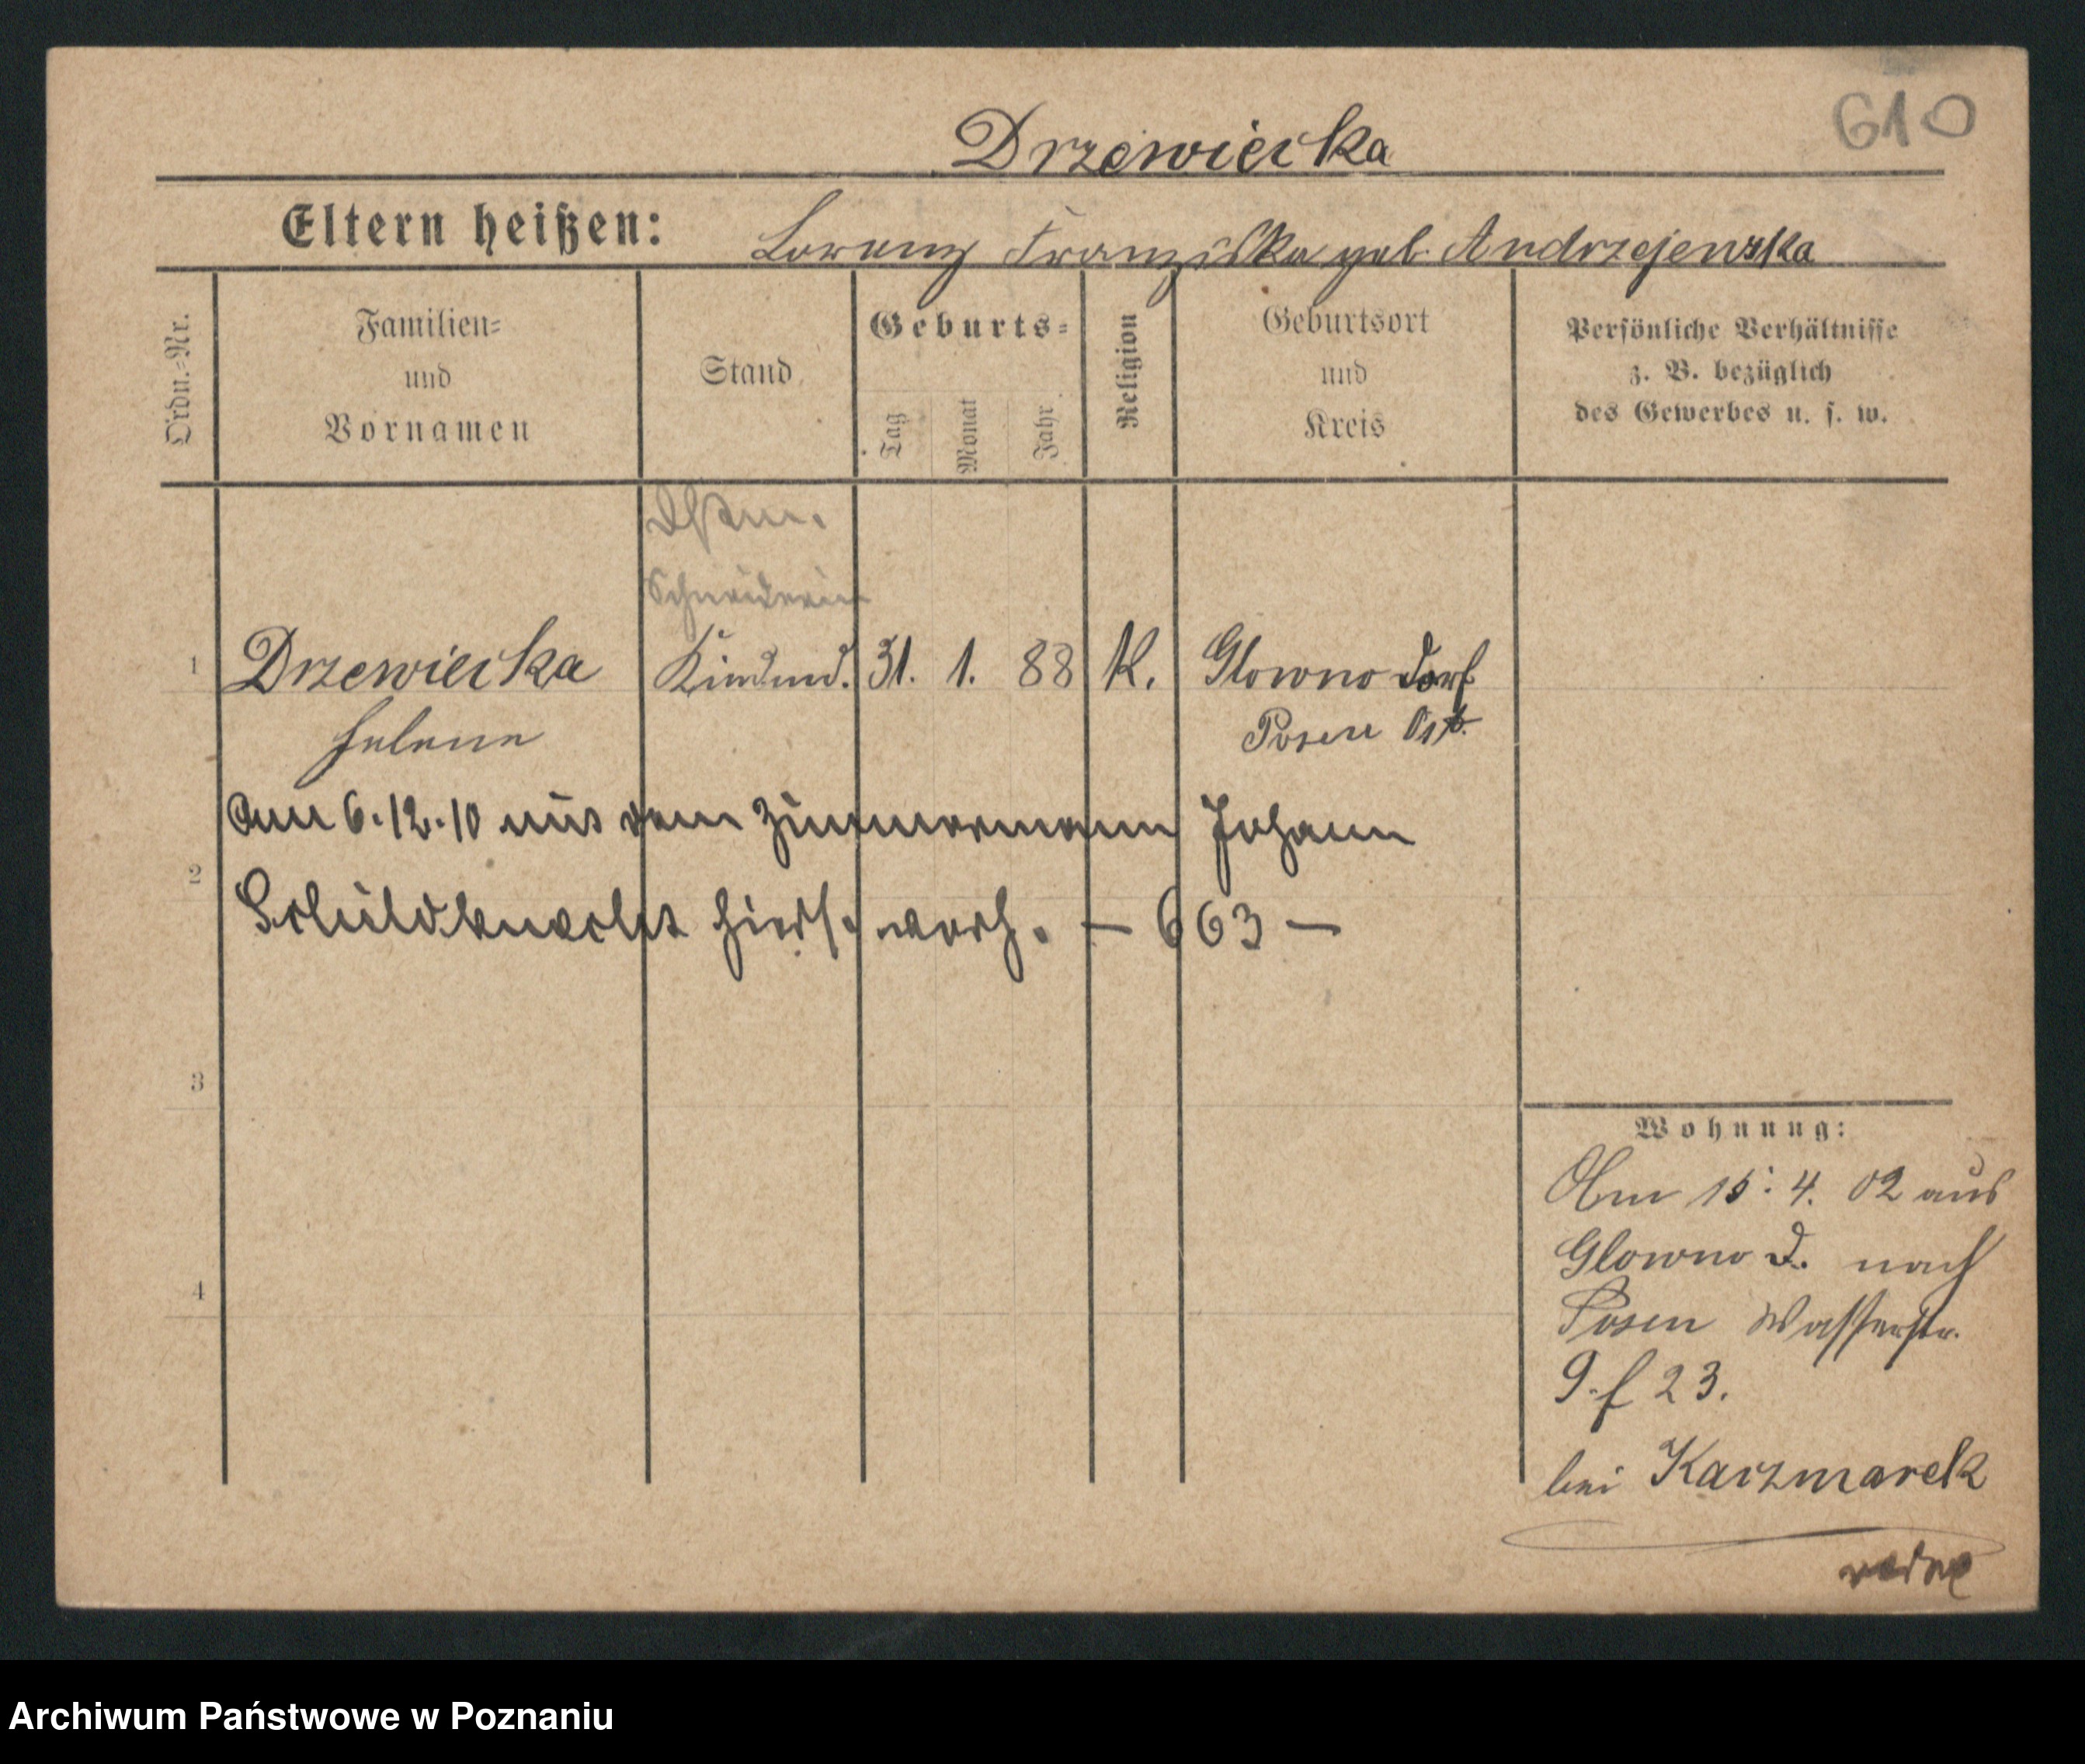 610
Drzewiecka
Eltern heißen: Lorenz Franziska geb. Andrzejewska
Ordn.-Nr.
Familien-
und
Vornamen
Stand
Geburts-
Tag
Monat
Jahr
Religion
Geburtsort
und
Kreis
Persönliche Verhältnisse
z. B. bezüglich
des Gewerbes u. s. w.
Schneiderin
1 Drzewiecka Kindmd. 31. 1. 88 K. Glowno Dorf
Helene Posen Ost.
Am 6.12.10 mit dem Zimmermann Johann
2
Schildknecht hiers. verh. — 663 —
3
4
Wohnung:
Am 15. 4. 02 aus
Glowno D. nach
Posen Wasserstr.
9. f 23.
bei Karzmarek
Archiwum Państwowe w Poznaniu